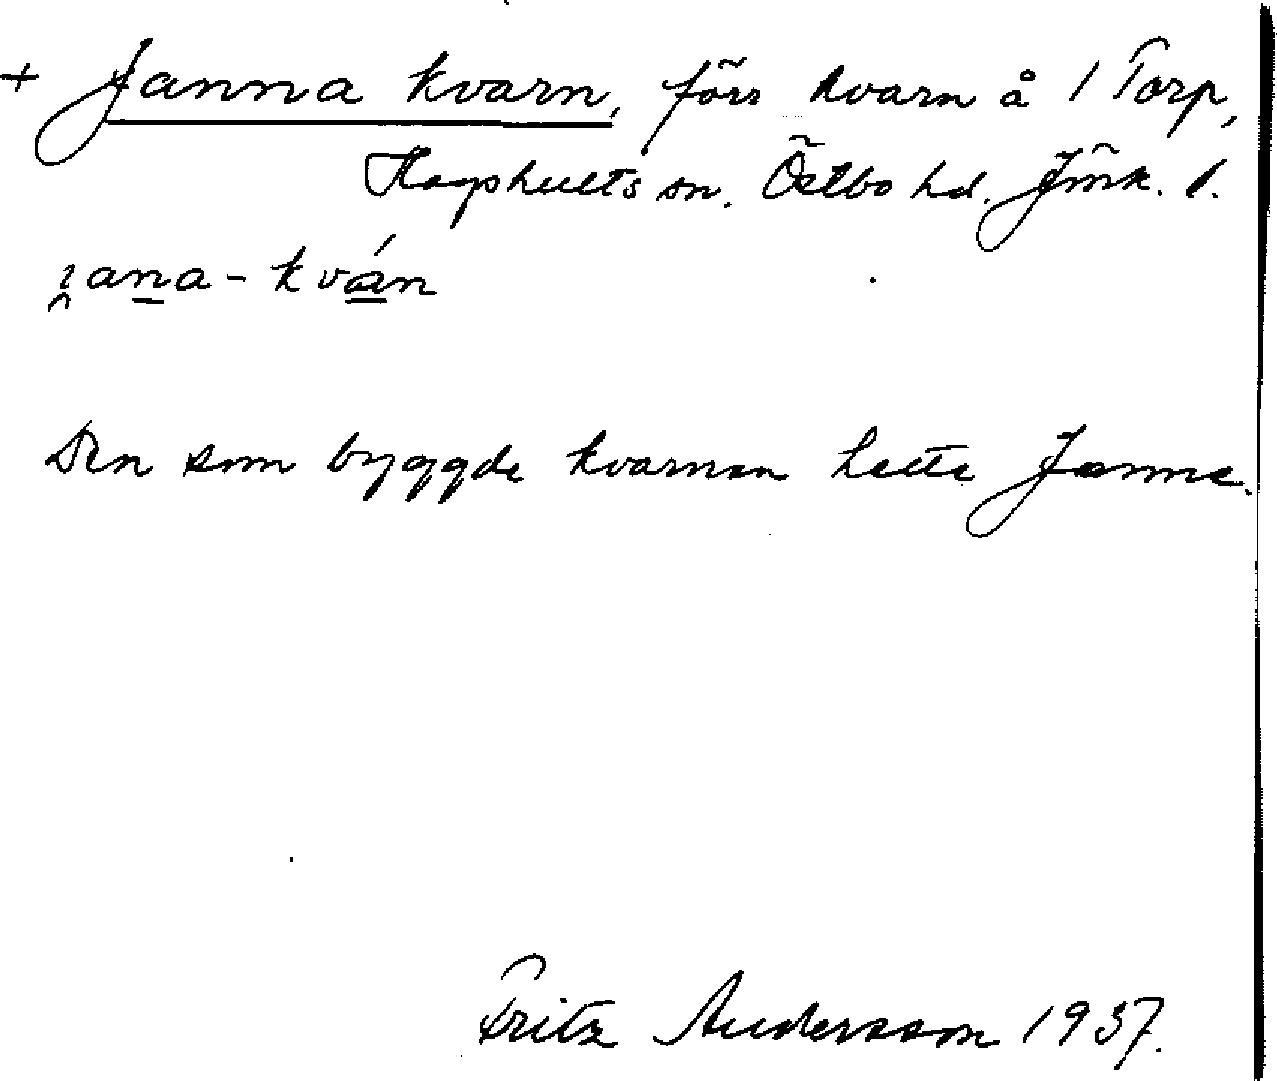 + Janna kvarn, förs kvarn å 1 Torp,
Hagshults sn. Östbo hd. Jönk. l.
i̯an̲a-kvá̲n
Den som byggde kvarnen hette Janne.
Fritz Andersson 1937.